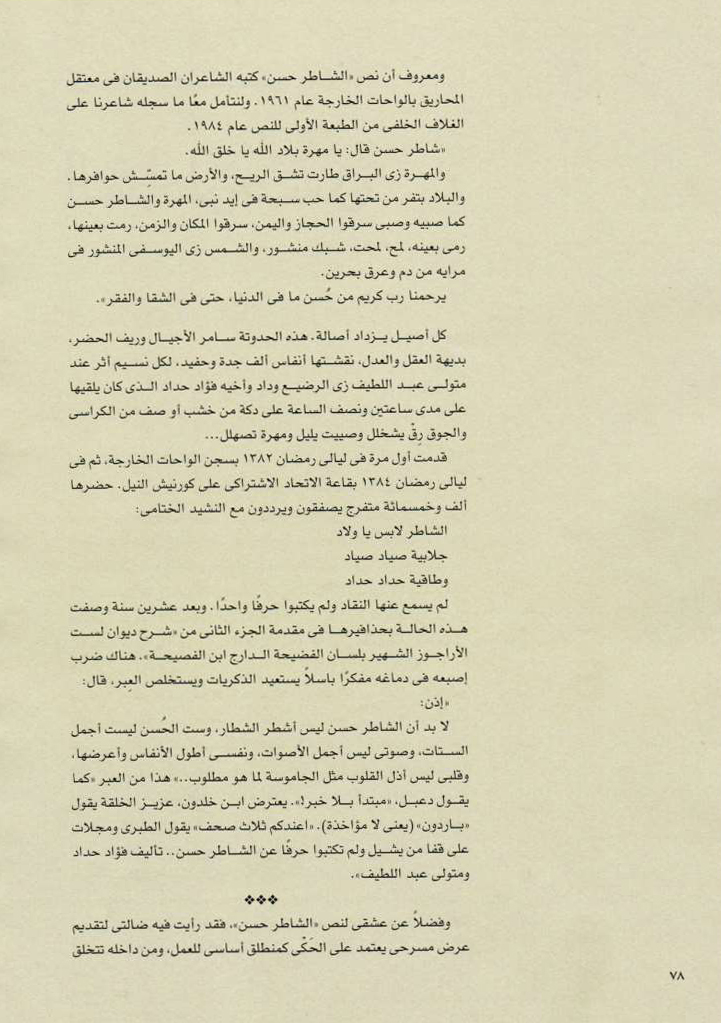 ومعروف أن نص «الشاطر حسن» كتبه الشاعران الصديقان فى معتقل
المحاريق بالواحات الخارجة عام ١٩٦١. ولنتأمل معًا ما سجله شاعرنا على
الغلاف الخلفى من الطبعة الأولى للنص عام ١٩٨٤.
«شاطر حسن قال: يا مهرة بلاد الله يا خلق الله.
والمهرة زى البراق طارت تشق الريح، والأرض ما تمسِّش حوافرها.
والبلاد بتفر من تحتها كما حب سبحة فى إيد نبى، المهرة والشاطر حسن
كما صبيه وصبى سرقوا الحجاز واليمن، سرقوا المكان والزمن، رمت بعينها،
رمى بعينه، لمح، لمحت، شبك منشور، والشمس زى اليوسفى المنشور فى
مرايه من دم وعرق بحرين.
يرحمنا رب كريم من حُسن ما فى الدنيا، حتى فى الشقا والفقر».
كل أصيل يزداد أصالة. هذه الحدوتة سامر الأجيال وريف الحضر،
بديهة العقل والعدل، نقشتها أنفاس ألف جدة وحفيد، لكل نسيم أثر عند
متولى عبد اللطيف زى الرضيع وداد وأخيه فؤاد حداد الذى كان يلقيها
على مدى ساعتين ونصف الساعة على دكة من خشب أو صف من الكراسى
والجوق رقّ يشخلل وصييت يليل ومهرة تصهلل...
قدمت أول مرة فى ليالى رمضان ١٣٨٢ بسجن الواحات الخارجة، ثم فى
ليالى رمضان ١٣٨٤ بقاعة الاتحاد الاشتراكى على كورنيش النيل. حضرها
ألف وخمسمائة متفرج يصفقون ويرددون مع النشيد الختامى:
الشاطر لابس يا ولاد
جلابية صياد صياد
وطاقية حداد حداد
لم يسمع عنها النقاد ولم يكتبوا حرفًا واحدًا. وبعد عشرين سنة وصفت
هذه الحالة بحذافيرها فى مقدمة الجزء الثانى من «شرح ديوان لست
الأراجوز الشهير بلسان الفضيحة الدارج ابن الفصيحة». هناك ضرب
إصبعه فى دماغه مفكرًا باسلاً يستعيد الذكريات ويستخلص العِبر، قال:
«إذن:
لا بد أن الشاطر حسن ليس أشطر الشطار، وست الحُسن ليست أجمل
الستات، وصوتى ليس أجمل الأصوات، ونفسى أطول الأنفاس وأعرضها،
وقلبى ليس أذل القلوب مثل الجاموسة لما هو مطلوب..» هذا من العبر «كما
يقول دعبل، «مبتدأ بلا خبر!». يعترض ابن خلدون، عزيز الخلقة يقول
«باردون» (يعنى لا مؤاخذة). «اعندكم ثلاث صحف» يقول الطبرى ومجلات
على قفا من يشيل ولم تكتبوا حرفًا عن الشاطر حسن.. تأليف فؤاد حداد
ومتولى عبد اللطيف».
❖❖❖
وفضلاً عن عشقى لنص «الشاطر حسن»، فقد رأيت فيه ضالتى لتقديم
عرض مسرحى يعتمد على الحَكْى كمنطلق أساسى للعمل، ومن داخله تتخلق
٧٨